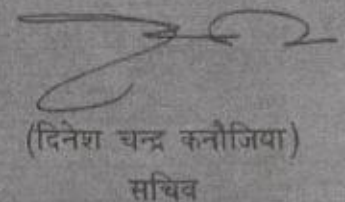 (दिनेश चन्द्र कनौजिया)
सचिव